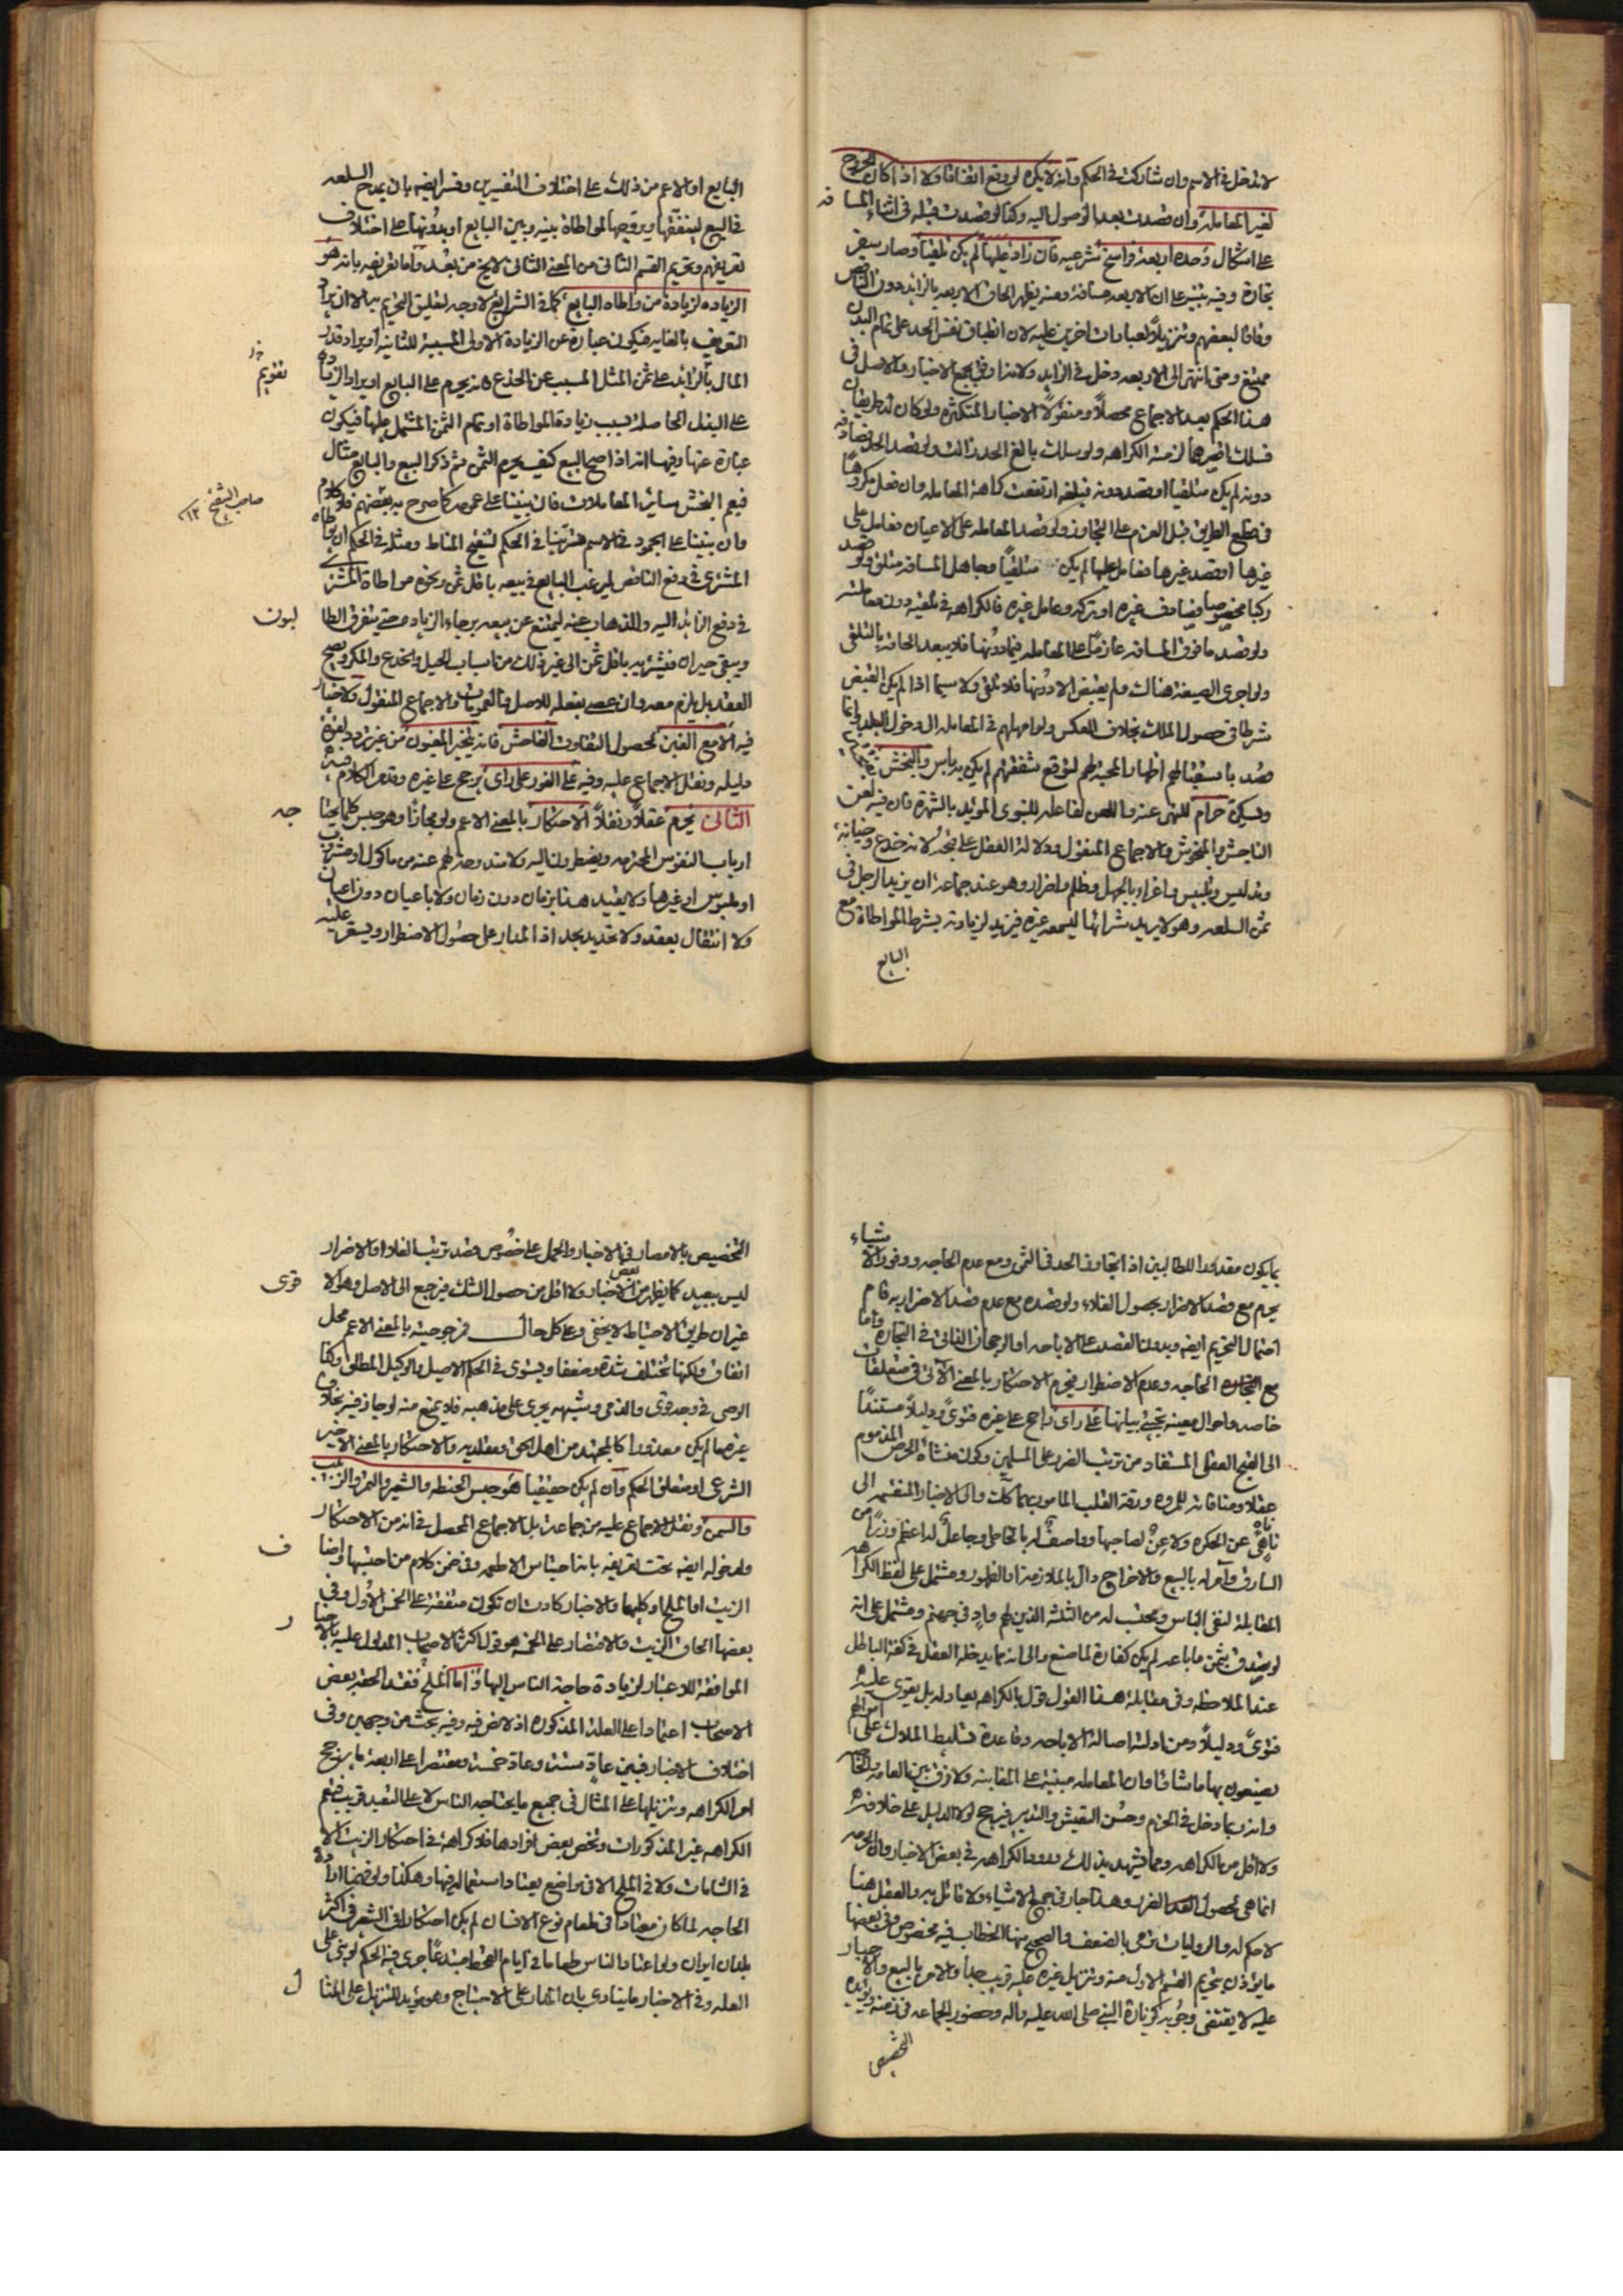 لا تدخل في الاسم وان شاركت في الحكم وانه لا يكره لو وقع اتفاقا ولا اذا كان الخروج
لغير المعاملة وان قصدت بعد الوصول اليه وكذا لو قصدت قبله في اثناء المسافه
على اشكال وحده اربعة فراسخ شرعيه فان زاد عليها لم يكن تلقيا وصار سفر
تجارة وفيه تنبيه على ان الاربعه مسافة ومنه يظهر الحاق الاربعه بالزائد دون الناقص
وفاقا لبعضهم وتنزيلا لعبارات اخرين عليه لان انطباق نفس الحد على تمام البدن
ممتنع ومتى انتهى الى الاربعه دخل في الزايد ولانه اوفق بجمع الاخبار والاصل في
هذا الحكم بعد الاجماع محصلا ومنقولا الاخبار المتكثره ولو كان له طريقان
فسلك اقصرهما لزمته الكراهه ولو سلك بالغ الحد زالت ولو قصد الحد فصادفه
دونه لم يكن متلقيا او قصد دونه فبلغه ارتفعت كراهة المعامله وان فعل مكروها
في قطع الطريق قبل العزم على التجاوز ولو قصد المعامله على الاعيان فعامل على
غيرها او قصد غيرها فعامل عليها لم يكن متلقيا وجاهل المسافه متلق ولو قصد
ركبا مخصوصا فصادف غيره او تركه وعامل غيره فالكراهه في تلقيه دون معاملته
ولو قصد ما فوق المسافه عازما على المعامله فيما دونها فلا يبعد الحاقه بالتلقي
ولو اجرى الصيغة هناك ولم يقبض الا دونها فلا تلقي ولا سيما اذا لم يكن القبض
شرطا في حصول الملك بخلاف العكس ولو امهلهم في المعامله الى دخول البلد وانما
قصد باستقبالهم اظهار المحبة لهم لتوقع شفقتهم لم يكن به باس والنجش
ويسكن حرام للنهي عنه واللعن لفاعله للنبوي المؤيد بالشهرة فان فيه لعن
الناجش والمنجوش والاجماع المنقول ودلالة العقل على قبحه لانه خدع وخيانة
وتدليس وتلبيس واغراء بالجهل وظلم واضرار وهو عند جماعة ان يزيد الرجل في
ثمن السلعه وهو لا يريد شرائها ليسمعه غيره فيزيد لزيادته بشرط المواطاة مع
البايع
البايع او الاعم من ذلك على اختلاف التفسيرين وفسر ايضه بان يمدح السلعه
في البيع لينفقها ويروجها لمواطاة بينه وبين البايع او بدونها على اختلاف
تعريفهم وتحريم القسم الثاني من المعنى الثاني لا يخ من بعد واما تعريفه بانه هو
الزياده لزيادة من واطاه البايع كما في الشرائع لا وجه لتعليق التحريم به الا ان يراد
التعريف بالغايه فيكون عبارة عن الزيادة الاولى المسببة للثانية او يراد قدر
المال الزائد على ثمن المثل المسبب عن الخدع فانه يحرم على البايع او يراد الزيادة
تقويم خ ر
على البذل الحاصلة بسبب زيادة المواطاة او تمام الثمن المشتمل عليها فيكون
عبارة عنها وفيها انه اذا صح البيع كيف يحرم الثمن ثم ذكر البيع والبايع مثال
فيعم النجش ساير المعاملات فان بنينا على عمومه كما صرح به بعضهم فلا كلام
صاحب الشيخ ١٢
وان بنينا على الجمود في الاسم سرينا في الحكم لتنقيح المناط ومثله في الحكم ان يواطاه
المشتري في دفع الناقص ليرغب البايع في بيعه باقل ثمن ونحوه مواطاة المشتري
في دفع الزائد اليه والذهاب عنه ليمتنع عن بيعه برجاء الزياده حتى يتفرق الطالبون
ويبقى حيران فيشتريه باقل ثمن الى غير ذلك من اسباب الحيل والخدع والمكر ويصح
العقد بل يلزم معه وان عصى بفعله للاصل والعمومات والاجماع المنقول ولا خيار
فيه الا مع الغبن لحصول التفاوت الفاحش فانه يتخير المغبون من غير تردد لقوة
دليله ونقل الاجماع عليه وفيه على الفور على راى يرجح على غيره وتقدم الكلام فيه
الثاني يحرم عقلا ونقلا الاحتكار بالمعنى الاعم ولو مجازا وهو حبس كلما يحتاجه
ارباب النفوس المحترمه ويضطرون اليه ولا مندوحة لهم عنه من ماكول او مشروب
او ملبوس او غيرها ولا يتقيد هذا بزمان دون زمان ولا باعيان دون اعيان
ولا انتقال بعقد ولا تحديد بحد اذ المدار على حصول الاضطرار ويسعر عليه
بما يكون مقدورا للطالبين اذا تجاوز الحد في الثمن ومع عدم الحاجه ووفور الاشياء
يحرم مع قصد الاضرار بحصول الغلاء ولو قصده مع عدم قصد الاضرار به قام
احتمال التحريم ايضه وبدون القصد على الاباحه او الرجحان الذاتي في التجاره واما
مع الحاجه وعدم الاضطرار فيحرم الاحتكار بالمعنى الاتي في متعلقات
خاصه واحوال معينه يجيئ بيانها على راى راجح على غيره فتوى ودليلا مستندا
الى القبح العقلي المستفاد من ترتب الضرر على المسلمين وكون منشاه الحرص المذموم
عقلا ومنافاته للمروه ورقة القلب المامور بهما كلت والى الاخبار المنقسمه الى
ناهي عن الحكره ولاعن لصاحبها وواصف له بالخاطئ وجاعل له اعظم وزرا من
السارق وامر له بالبيع والاخراج دال بالملازمة او الظهور ومشتمل على لفظ الكراهه
المقابلة لنفي الباس ومحتسب له من الثلثة الذين لهم واد في جهنم ومشتمل على انه
لو تصدق بثمن ما باعه لم يكن كفارة لما صنع والى انه مما يدخله العقل في كفة الباطل
عند الملاحظه وفي مقابلة هذا القول قول بالكراهه يعادله بل يقوى عليه
فتوى ودليلا ومن ادلته اصالة الاباحه وقاعدة تسليط الملاك على اموالهم
يصنعون بها ما شاؤا وان المعامله مبنية على المغابنه ولا فرق بين العامه والخاصه
وانه ربما دخل في الحزم وحسن التعيش والتدبير فيرجح لولا الدليل على خلافه
ولا اقل من الكراهه ومما يشهد بذلك ورود الكراهه في بعض الاخبار وان الحرمه
انما هي لحصول الضرر وهذا جار في جميع الاشياء ولا قائل به والعقل هنا
لا حكم له والروايات ترمى بالضعف والصحيح منها الخطاب فيه مخصوص وفي بعضها
ما يؤذن بتحريم القسم الاول منه وتنزيل غيره عليه قريب جدا والامر بالبيع والاجبار
عليه لا يقتضي وجوبه كزيارة النبي صلى الله عليه واله وحضور الجماعه في زمنه ويؤيده
التخصيص
التخصيص بالامصار في الاخبار والحمل على خصوص قصد ترتب الغلاء او الاضرار
ليس ببعيد كما يظهر من بعض الاخبار ولا اقل من حصول الشك فيرجع الى الاصل وهو الاقوى
غير ان طريق الاحتياط لا يخفى وعلى كل حال فمرجوحيته بالمعنى الاعم محل
اتفاق ولكنها تختلف شدة وضعفا ويستوي في الحكم الاصيل والوكيل المطلق وكذا
الوصي في وجه قوي والذمي وشبهه يجري على مذهبه فلا يمنع منه لو جاز فيه بخلاف
غيرهما لم يكن معذورا كالمجتهد من اهل الحق ومقلديه والاحتكار بالمعنى الاخير
الشرعي او متعلق الحكم وان لم يكن حقيقيا هو حبس الحنطه والشعير والتمر والزبيب
والسمن ونقل الاجماع عليه من جماعة بل الاجماع المحصل في انه من الاحتكار
ولدخوله ايضه تحت تعريفه بانه احتباس الاطعمه وفي ضمن كلام من احتسبها واضاف
الزيت او الملح او كليهما والاخبار كادت ان تكون متفقة على الخمس الاول وفي
بعضها الحاق الزيت والاقتصار على الخمسه هو قول اكثر الاصحاب المدلول عليه بالاخبار
الموافقة للاعتبار لزيادة حاجة الناس اليها واما الملح فقد الحقه بعض
الاصحاب اعتمادا على العلة المذكوره اذ لا نص فيه وفيه بحث من وجهين وفي
اختلاف الاخبار فبين عاد ستة وعاد خمسة ومقتصر على اربعة ما يرجح
امر الكراهه وتنزيلها على المثال في جميع ما يحتاجه الناس لا على التعبد قريب فتعم
الكراهه غير المذكورات وتخص بعض افرادها فلا كراهة في احتكار الزيت الا
في الشامات ولا في الملح الا في مواضع يعتاد استعماله فيها وهكذا ولو خصصنا ادارة
الحاجه لما كان معتادا في طعام نوع الانسان لم يكن احتكار في الشعير في اكثر
بلدان ايران ولو اعتاد الناس طعاما في ايام القحط مبتدعا جرى فيه الحكم لو بنى على
العله وفي الاخبار ما ينادي بان المدار على الاحتياج وهو مؤيد للتنزيل على المثال